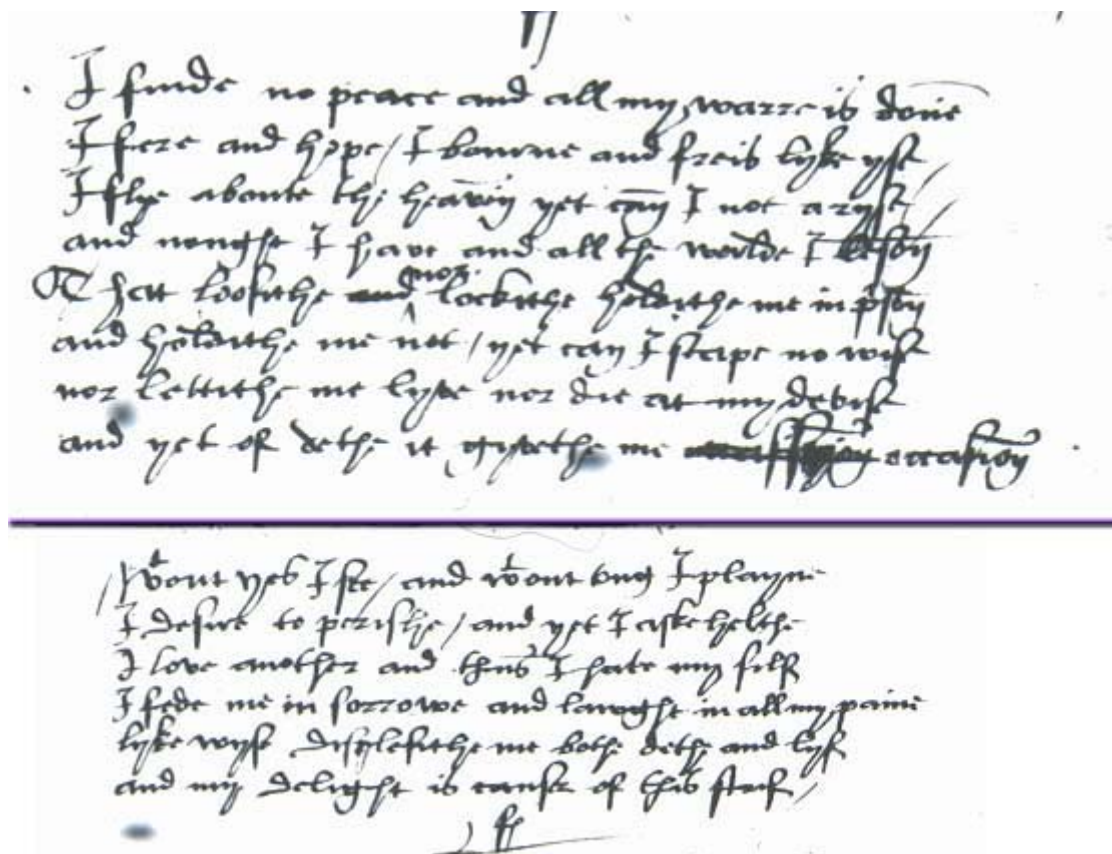 I fynde no peace and all my warre is done
I fere and hope / I bourne and freis lyke yse /
I flye above the hevin yet can I not aryse /
and nought I have and all the worlde I seson
That loosithe and nor lockithe holdithe me in prison
and holdithe me not / yet can I scape no wise
nor lettithe me lyve nor die at my devise
and yet of dethe it givethe me occasion
wtout yes I se / and wtout tung I playne
I desire to perisshe / and yet I aske helthe
I love another and thus I hate my self
I fede me in sorrowe and lawght in all my paine
lyke wyse displesithe me bothe dethe and lyf
and my delight is causer of this stryf /